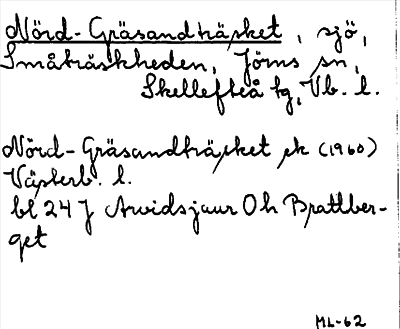 Nörd-Gräsandträsket, sjö,
Småträskheden, Jörns sn,
Skellefteå tg, Vb. l.
Nörd-Gräsandträsket ek (1960)
Västerb. l.
bl 24 J Arvidsjaur Oh Brattber-
get
ML-62